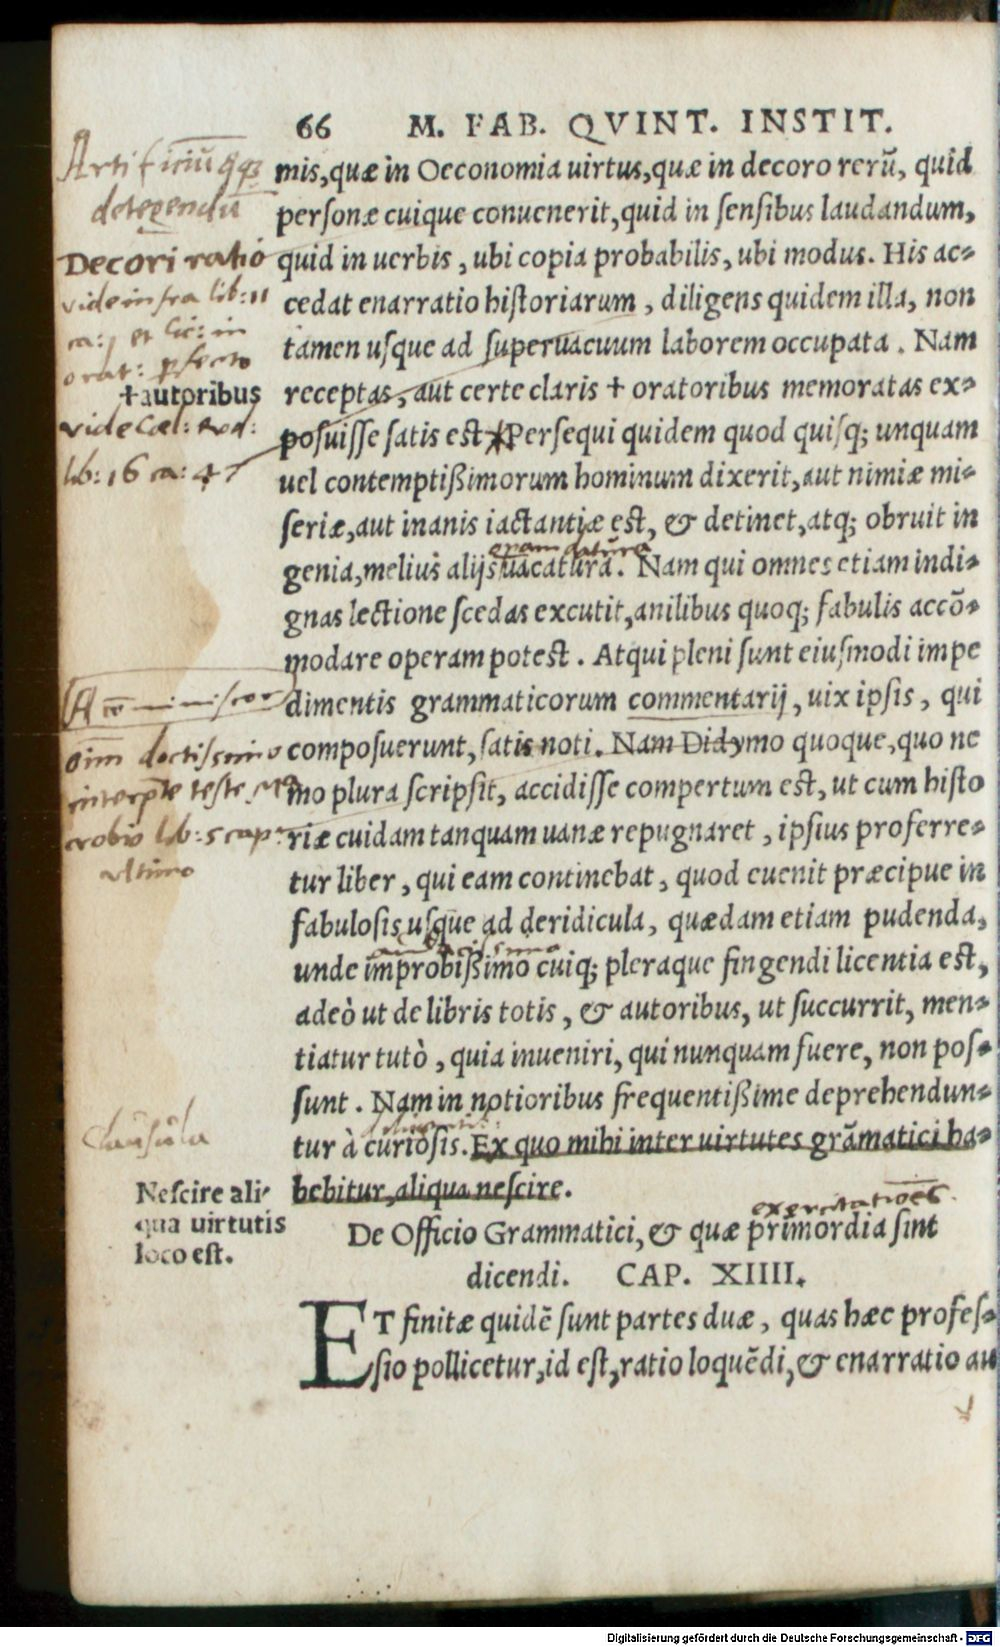 66 M. FAB. QVINT. INSTIT.
mis, quæ in Oeconomia uirtus, quæ in decoro rerũ, quid
personæ cuique conuenerit, quid in sensibus laudandum,
quid in uerbis, ubi copia probabilis, ubi modus. His ac-
cedat enarratio historiarum, diligens quidem illa, non
tamen usque ad superuacuum laborem occupata. Nam
receptas, aut certe claris + oratoribus memoratas ex-
posuisse satis est. Persequi quidem quod quisq; unquam
uel contemptißimorum hominum dixerit, aut nimiæ mi-
seriæ, aut inanis iactantiæ est, & detinet, atq; obruit in
operam datura
genia, melius alijs uacatura. Nam qui omnes etiam indi-
gnas lectione scedas excutit, anilibus quoq; fabulis accõ-
modare operam potest. Atqui pleni sunt eiusmodi impe
dimentis grammaticorum commentarij, uix ipsis, qui
composuerunt, satis noti. Nam Didymo quoque, quo ne
mo plura scripsit, accidisse compertum est, ut cum histo
riæ cuidam tanquam uanæ repugnaret, ipsius proferre-
tur liber, qui eam continebat, quod euenit præcipue in
fabulosis usque ad deridicula, quædam etiam pudenda,
unde improbißimo cuiq; pleraque fingendi licentia est,
adeò ut de libris totis, & autoribus, ut succurrit, men-
tiatur tutò, quia inueniri, qui nunquam fuere, non pos-
sunt. Nam in notioribus frequentißime deprehendun-
tur à curiosis. Ex quo mihi inter uirtutes grãmatici ha-
bebitur, aliqua nescire.
exercitationes
De Officio Grammatici, & quæ primordia sint
dicendi. CAP. XIIII.
ET finitæ quidẽ sunt partes duæ, quas hæc profes-
sio pollicetur, id est, ratio loquẽdi, & enarratio au
Artificiũ
detegendũ
Decori ratio
vide infra lib: 11
ca: 1 et Cic: in
orat: perfecto
+autoribus
vide Cæl: Rod:
lib: 16 ca: 47
doctissimo
teste Ma
crobio lib: 5 cap:
ultimo
Clausula
Nescire ali-
qua uirtutis
loco est.
Digitalisierung gefördert durch die Deutsche Forschungsgemeinschaft - DFG